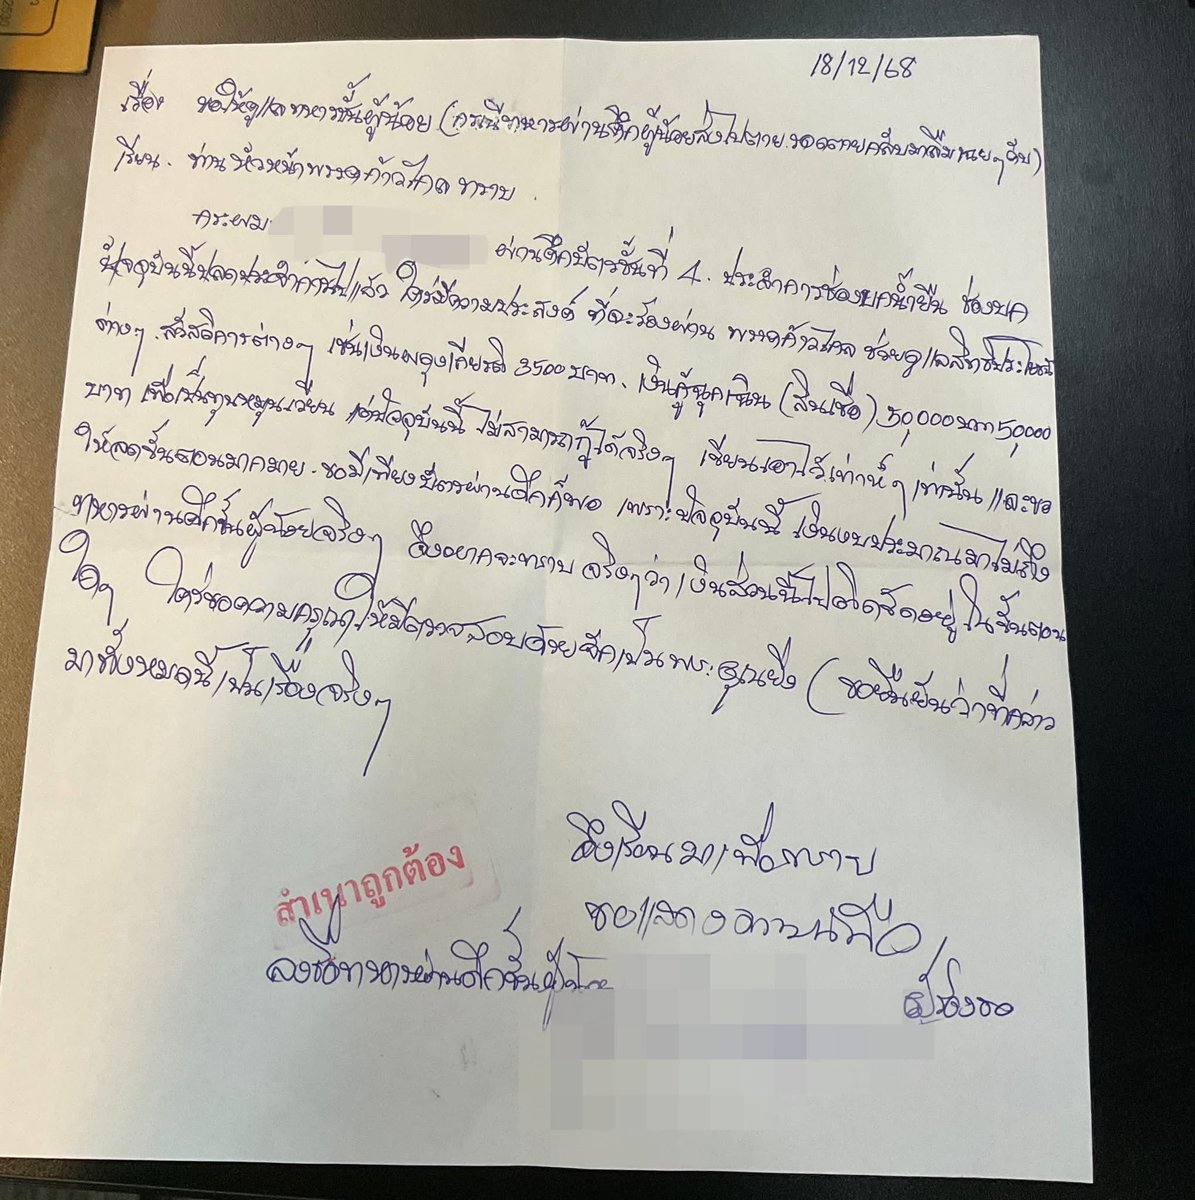 18/12/68
เรื่อง ขอให้ดูแลทหารชั้นผู้น้อย (กรณีทหารผ่านศึกผู้น้อยส่งไปตาย รอดตายกลับมาลืม
เรียน. ท่านหัวหน้าพรรคก้าวไกล ทราบ.
กระผม ผ่านศึกบัตรชั้นที่ 4. ประจำการช่องบกน้ำยืน ช่องบก
ปัจจุบันนี้ปลดประจำการไปแล้ว ใคร่มีความประสงค์ ที่จะร้องผ่าน พรรคก้าวไกล ช่วยดูแลสิทธิประโยชน์
ต่างๆ. สวัสดิการต่างๆ เช่นเงินผดุงเกียรติ 3500 บาท. เงินกู้ฉุกเฉิน (สินเชื่อ) 30,000 บาท 50,000
บาท เพื่อเป็นทุนหมุนเวียน แต่ปัจจุบันนี้ ไม่สามารถกู้ได้จริงๆ เขียนเอาไว้เท่ห์ๆ เท่านั้น และขอ
ให้ลดขั้นตอนมากมาย. ขอมีเพียงบัตรผ่านศึกก็พอ เพราะปัจจุบันนี้ เงินงบประมาณมาไม่ถึง
ทหารผ่านศึกชั้นผู้น้อยจริงๆ จึงอยากจะทราบ จริงๆว่า เงินส่วนนี้ไปติดขัดอยู่ ในขั้นตอน
ใดๆ ใคร่ขอความกรุณา ให้มีตรวจสอบด้วยจักเป็นพระคุณยิ่ง (ขอยืนยันว่าที่กล่าว
มาทั้งหมดนี้เป็นเรื่องจริงๆ
จึงเรียนมาเพื่อทราบ
ขอแสดงความนับถือ
สำเนาถูกต้อง
ลงชื่อทหารผ่านศึกชั้นผู้น้อย ผู้ร้องขอ